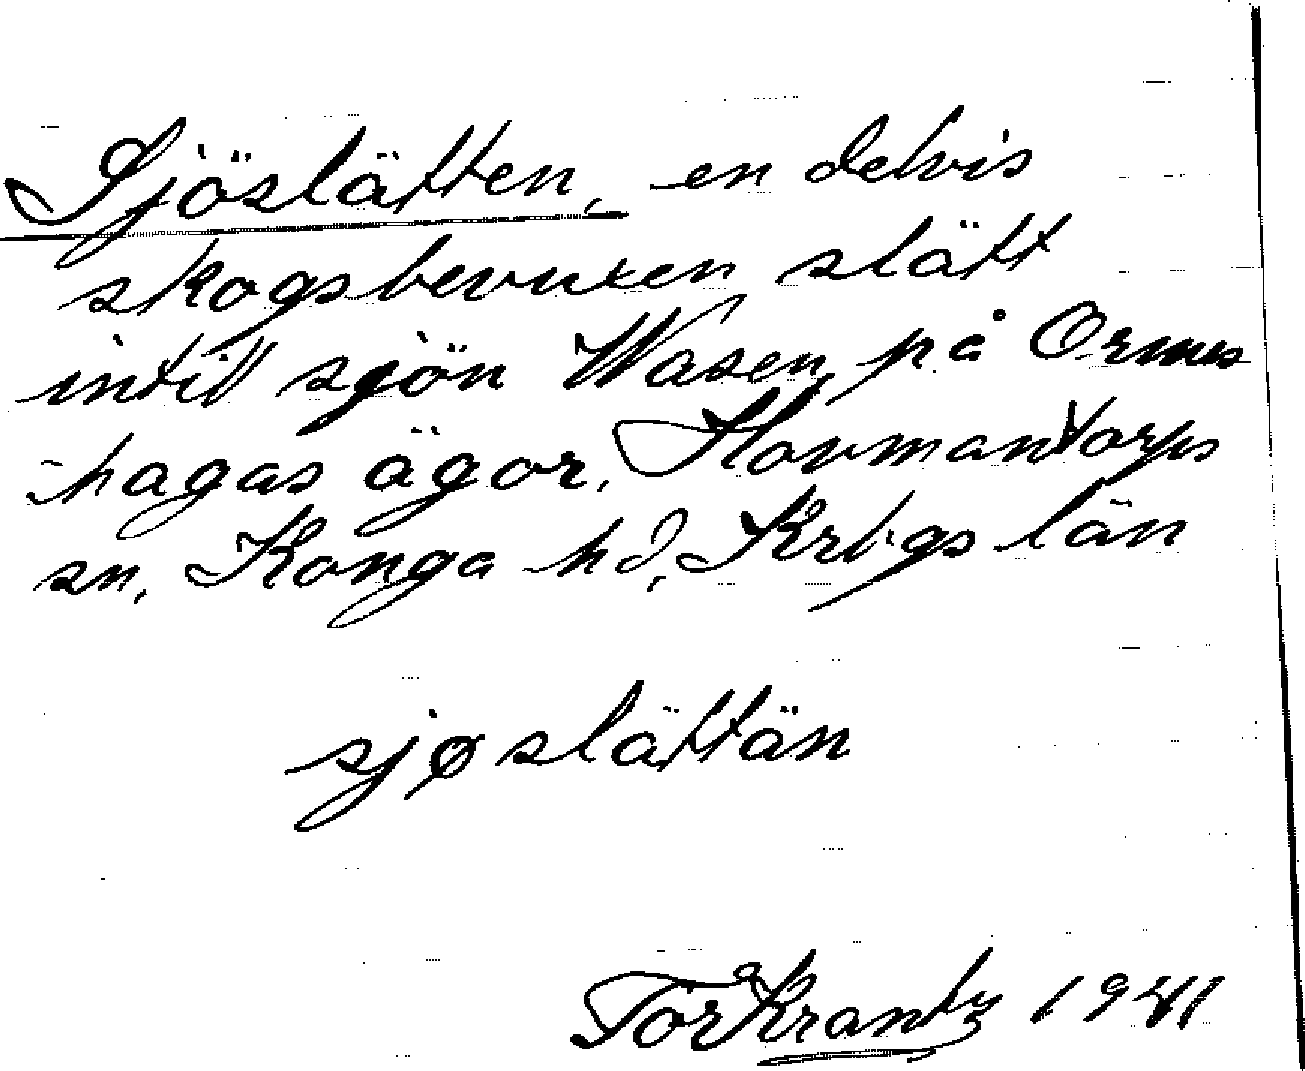 Sjöslätten, en delvis
skogsbevuxen slätt
intill sjön Wasen, på Ormes
-hagas ägor. Hovmantorps
sn. Konga hd, Krbgs län
sjøslättän
Tor Krantz 1941